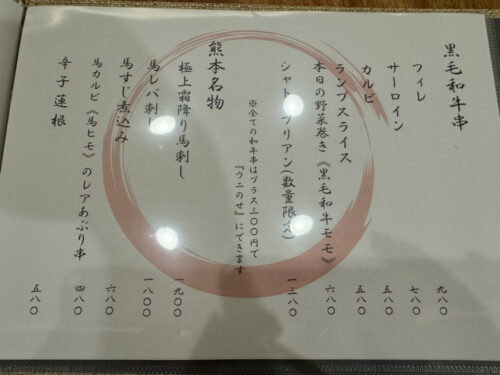 黒毛和牛串
フィレ 九八〇
サーロイン 七八〇
カルビ 五八〇
ランプスライス 五八〇
本日の野菜巻き《黒毛和牛モモ》 六八〇
シャトーブリアン(数量限定) 一三八〇
※全ての和牛串はプラス三〇〇円で
『ウニのせ』にできます
熊本名物
極上霜降り馬刺し 一九〇〇
馬レバ刺し 一八〇〇
馬すじ煮込み 六八〇
馬カルビ《馬ヒモ》のレアあぶり串 四八〇
辛子蓮根 五八〇